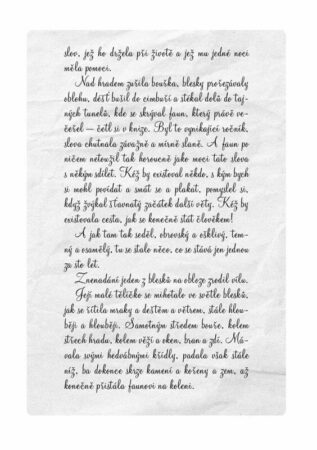 slov, jež ho držela při životě a jež mu jedné noci
měla pomoci.
Nad hradem zuřila bouřka, blesky prořezávaly
oblohu, déšť bušil do cimbuří a stékal dolů do taj-
ných tunelů, kde se skrýval faun, který právě ve-
čeřel – četl si v knize. Byl to vynikající ročník,
slova chutnala závažně a mírně slaně. A faun po
ničem netoužil tak horoucně jako moci tato slova
s někým sdílet. Kéž by existoval někdo, s kým bych
si mohl povídat a smát se a plakat, pomyslel si,
když žvýkal šťavnatý začátek další věty. Kéž by
existovala cesta, jak se konečně stát člověkem!
A jak tam tak seděl, obrovský a ošklivý, tem-
ný a osamělý, tu se stalo něco, co se stává jen jednou
za sto let.
Znenadání jeden z blesků na obloze zrodil vílu.
Její malé tělíčko se mihotalo ve světle blesků,
jak se řítila mraky a deštěm a větrem, stále hlou-
běji a hlouběji. Samotným středem bouře, kolem
střech hradu, kolem věží a oken, bran a zdí. Má-
vala svými hedvábnými křídly, padala však stále
níž, ba dokonce skrze kamení a kořeny a zem, až
konečně přistála faunovi na koleni.